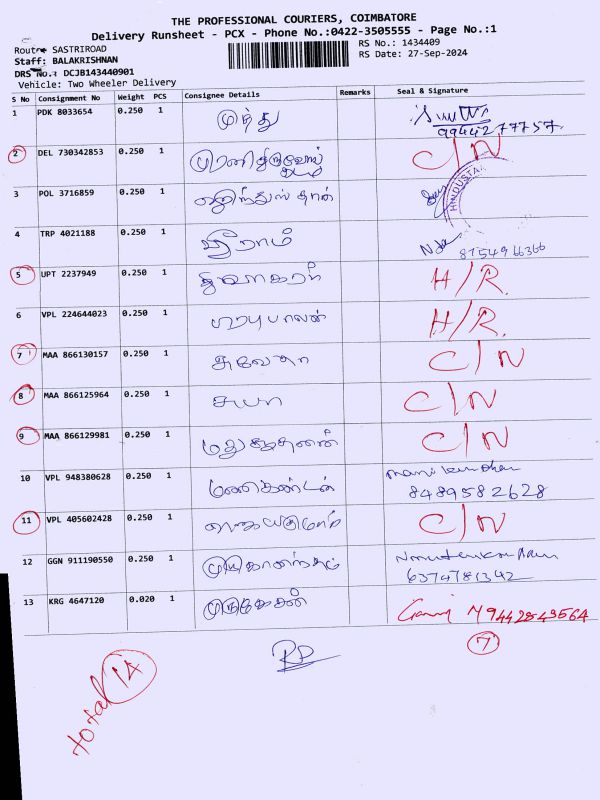 THE PROFESSIONAL COURIERS, COIMBATORE
Delivery Runsheet - PCX - Phone No.:0422-3505555 - Page No.:1
Route SASTRIROAD
RS No.: 1434409
Staff: BALAKRISHNAN
RS Date: 27-Sep-2024
DRS No.: DCJB143440901
Vehicle: Two Wheeler Delivery
S No Consignment No Weight PCS Consignee Details Remarks Seal & Signature
1 PDK 8033654 0.250 1 முத்து
9944277757
2 DEL 730342853 0.250 1 C/N
3 POL 3716859 0.250 1 HINDUSTA
4 TRP 4021188 0.250 1 ஸ்ரீராம் 8754966366
5 UPT 2237949 0.250 1 திவாகரன் H/R.
6 VPL 224644023 0.250 1 H/R.
7 MAA 866130157 0.250 1 சுவேதா C/N
8 MAA 866125964 0.250 1 சுபா C/N
9 MAA 866129981 0.250 1 மதுசூதனன் C/N
10 VPL 948380628 0.250 1 மணிகண்டன் manikandan
8489582628
11 VPL 405602428 0.250 1 C/N
12 GGN 911190550 0.250 1
6374781342
13 KRG 4647120 0.020 1 முருகேசன்
7
total 14